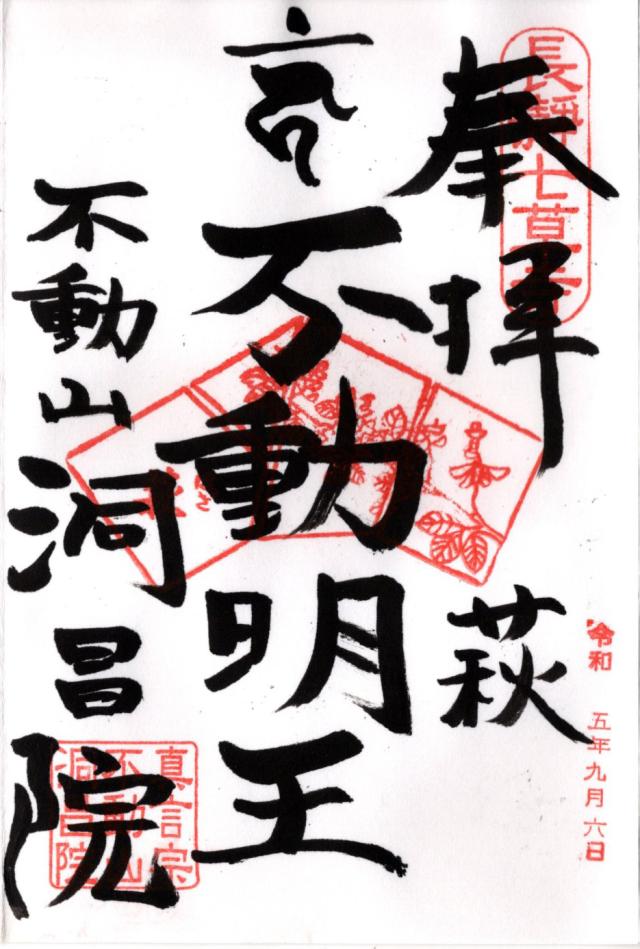 長瀞七草寺
奉拝
萩
令和 五年九月六日
不動明王
不動山
洞昌院
真言宗
不動山
洞昌院